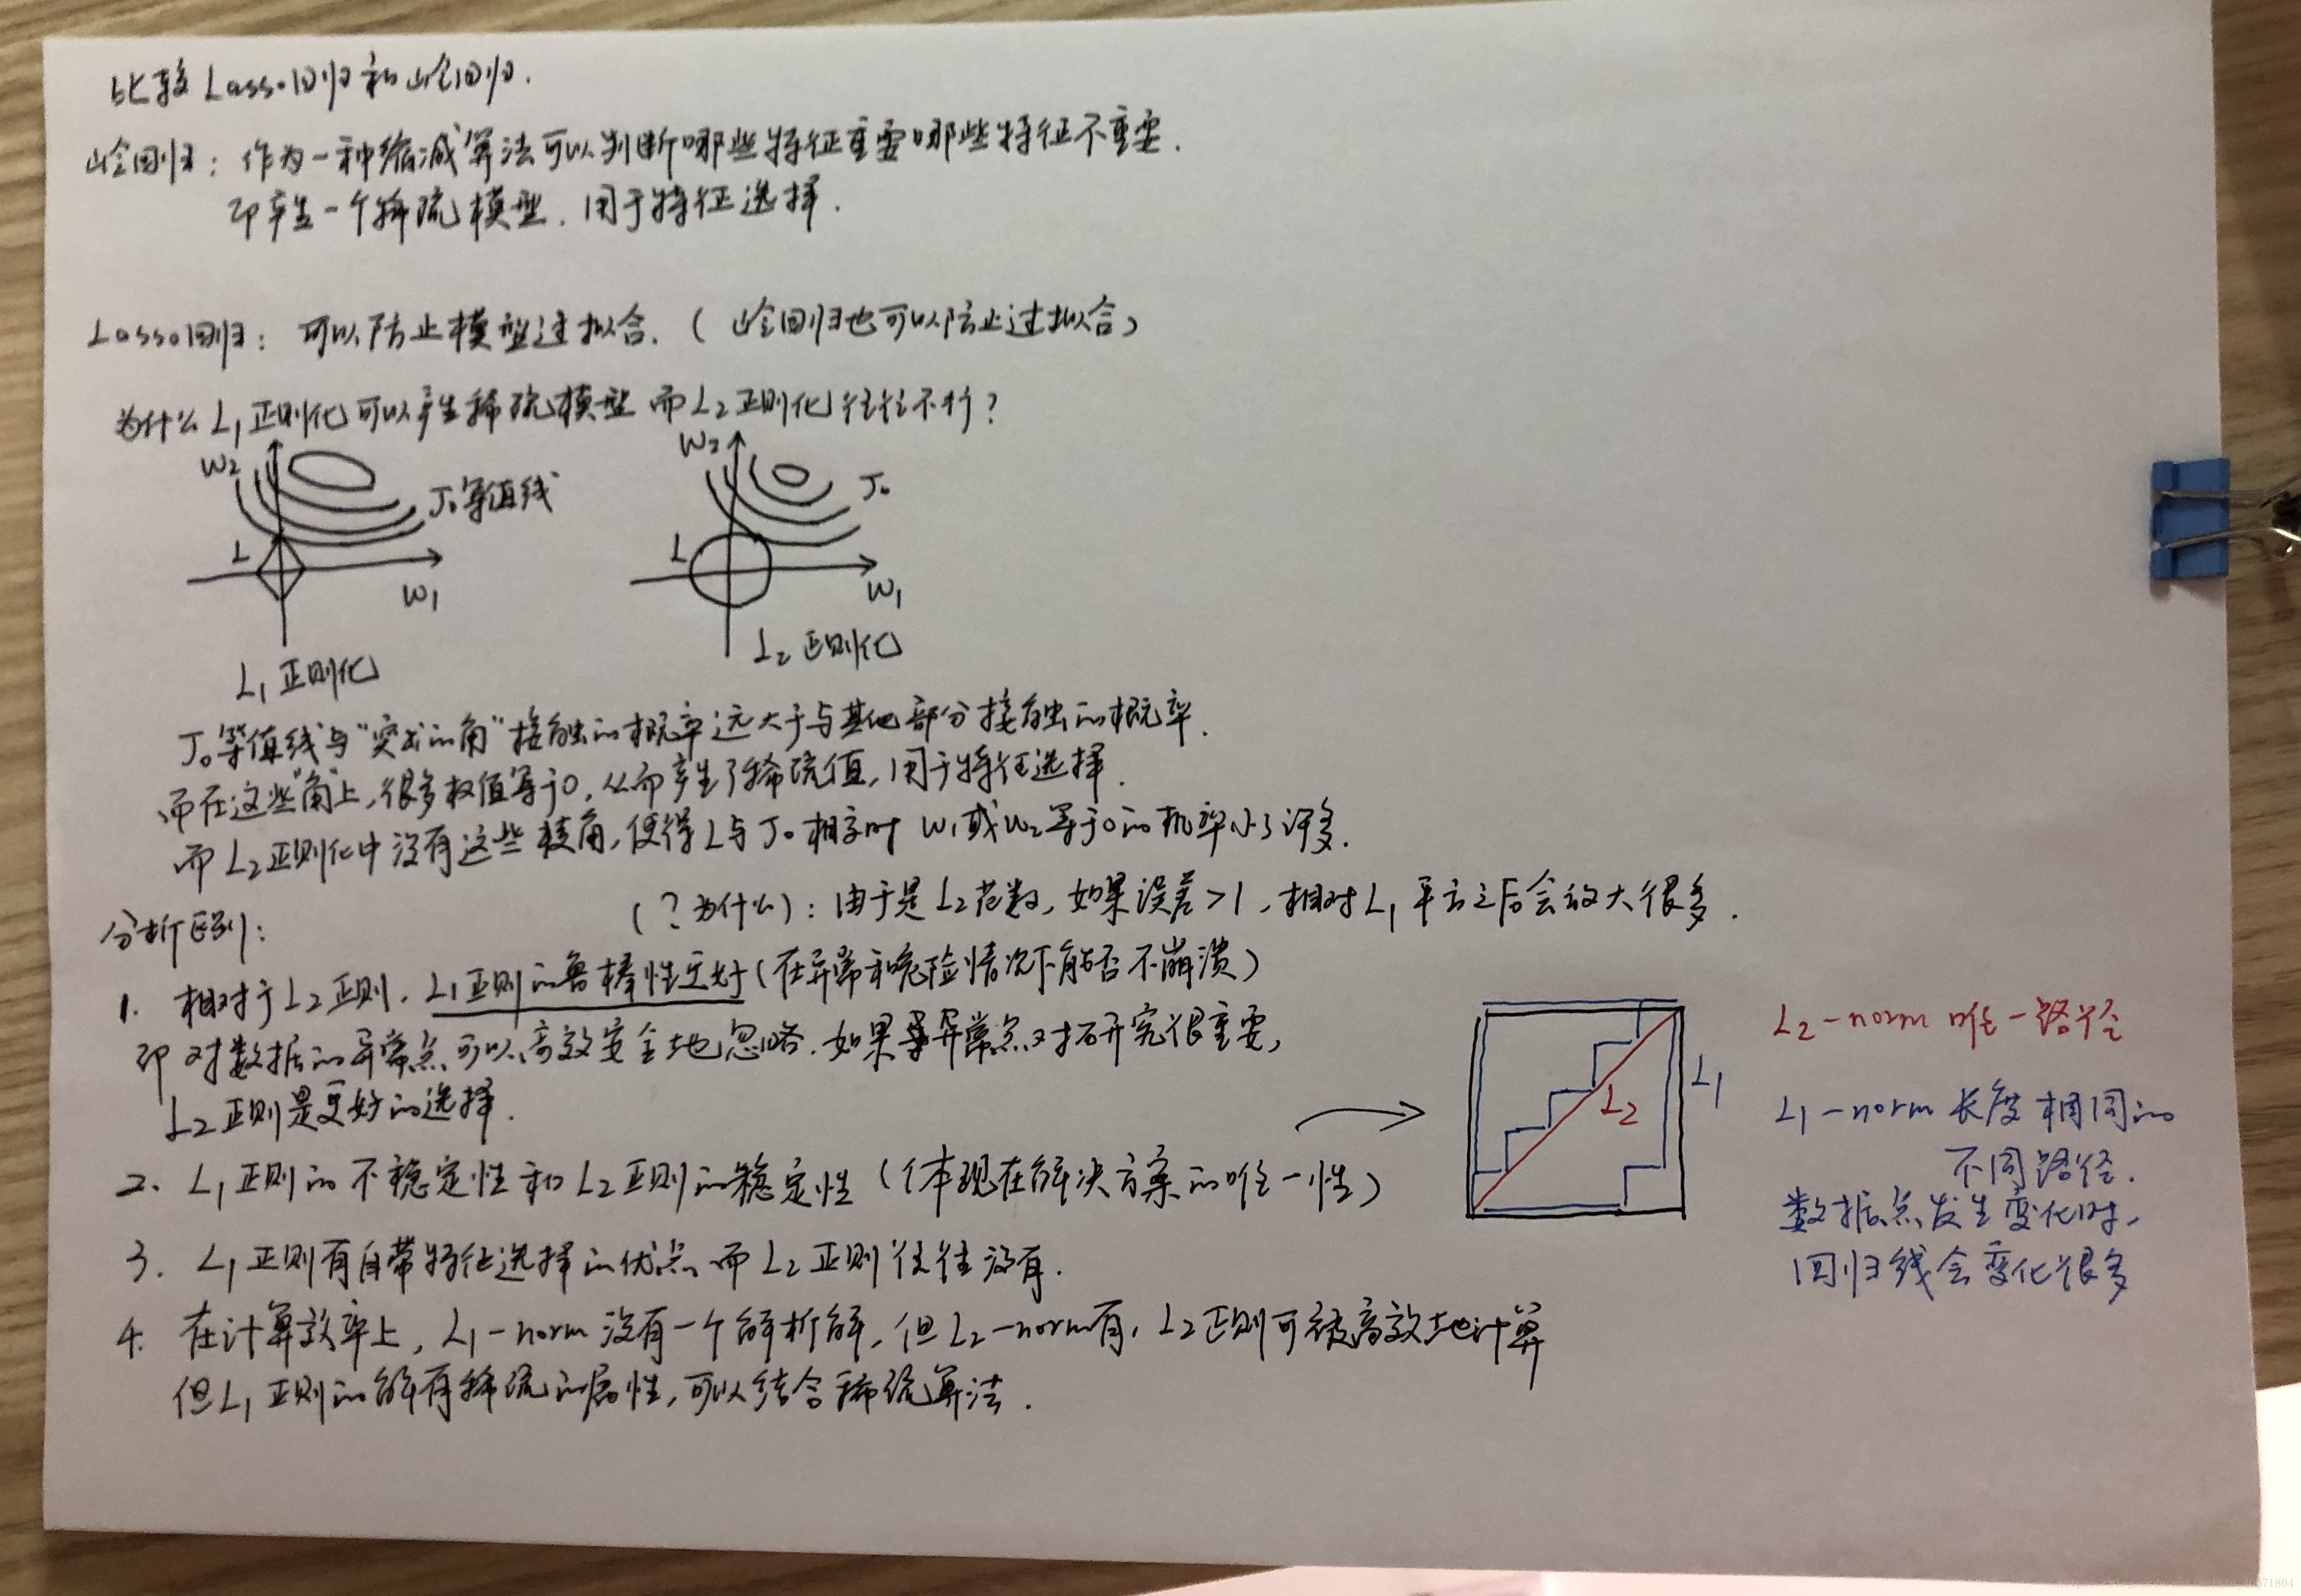 比较Lasso回归和岭回归.
岭回归：作为一种缩减算法可以判断哪些特征重要哪些特征不重要.
即产生一个稀疏模型. 用于特征选择.
Lasso回归：可以防止模型过拟合.（岭回归也可以防止过拟合）
为什么L₁正则化可以产生稀疏模型 而L₂正则化往往不行？
W₂
J₀等值线
L
W₁
L₁正则化
W₂
J₀
L
W₁
L₂正则化
J₀等值线与"突出的角"接触的概率远大于与其他部分接触的概率.
而在这些"角"上,很多权值等于0,从而产生了稀疏值,用于特征选择.
而L₂正则化中没有这些棱角,使得L与J₀相交时 W₁或W₂等于0的机率小了许多.
分析区别：
（？为什么）：由于是L₂范数, 如果误差>1, 相对L₁平方之后会放大很多.
1. 相对于L₂正则, L₁正则的鲁棒性更好（在异常和危险情况下能否不崩溃）
即对数据的异常点可以高效安全地忽略. 如果异常点对研究很重要,
L₂正则是更好的选择.
2. L₁正则的不稳定性和L₂正则的稳定性（体现在解决方案的唯一性）
3. L₁正则有自带特征选择的优点 而L₂正则往往没有.
4. 在计算效率上, L₁-norm没有一个解析解, 但L₂-norm有, L₂正则可被高效地计算
但L₁正则的解有稀疏的属性,可以结合稀疏算法.
L₁
L₂
L₂-norm 唯一路径
L₁-norm 长度相同的
不同路径.
数据点发生变化时,
回归线会变化很多